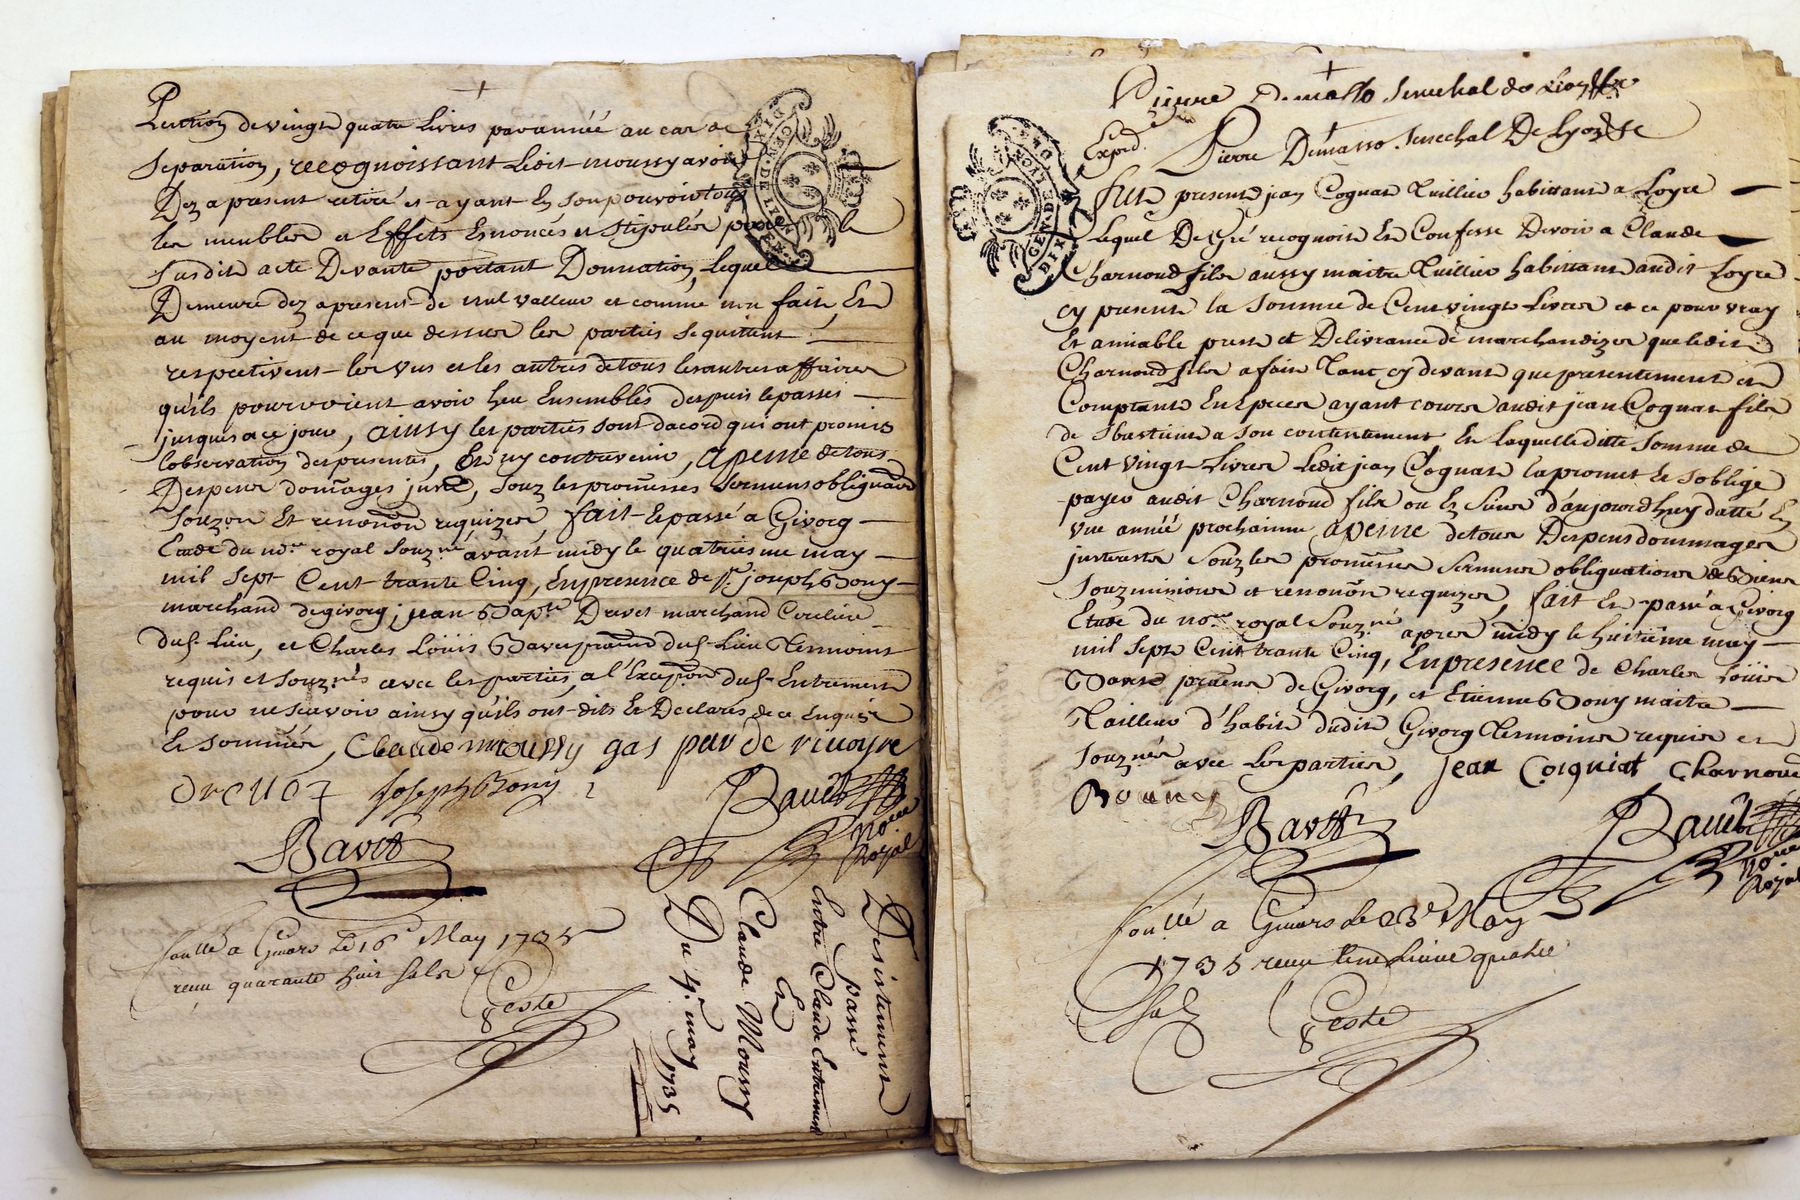 Pention de vingt quatre livres par année au cas de
separation, recognoissant ledit moussy avoir
Dez a present retiré et ayant en son pouvoir tous
les meubles et Effets Enoncés et stipulés par le
susdit acte Devante portant Donnation, lequel
Demeure dez apresent de nul valleur et comme non fait, Et
au moyent de ce que dessus les parties se quittent
respectivent les uns et les autres de tous les autres affaires
qu'ils pourroient avoir heu Ensembles despuis le passés
jusques a ce jour, ainsy les parties sont dacord qui ont promis
lobservation des presentes, Et ny contrevenir, apeine de tous
Despens dom̃ages jnstz, souz les promesses sermens obligaõns
souzon Et renonõn requizes, fait Et passé a Givorg
Etude du nore royal souzné avant midy le quatriesme may
mil sept Cent trante Cinq, En presence de sr joseph Bony
marchand de givorg, jean Bapte Drevet marchand
dud lieu, et Charles Loüis Bavet pratien dud lieu tesmoins
requis et souznés avec les parties, a l'Excepõn dud Entremens
pour ne scavoir ainsy qu'ils ont dits Et Declarés de ce Enquis
Et sommés, Claude moussy gas par de rivoyre
Drevet joseph Bony
Bavet
nore
Royal
scellé a Givors Le 16e May 1735
receu quarante huit sols
Coste
Desistement
passé
Entre Claude Entremens
Et
Claude Moussy
Du 4e may 1735
Pierre Demasso senechal de Lion &c
Exped.
Pierre Demasso, senechal De Lyon &c
fut present jean Coignat tuillier habittant a Loyre
Lequel De Gré recognoit Et Confesse Devoir a Claude
Charnoud fils aussy maitre tuillier habittant audit Loyre
cy present la somme de Cent vingt Livres et ce pour vray
Et amiable prest et Delivrance de marchandizes que ledit
Charnoud fils a fait tant cy devant que presentement et
Comptant En Epeces ayant cours audit jean Coignat fils
de sbastien a son contentement En laquelle ditte somme de
Cent vingt Livres Ledit jean Coignat la promet Et soblige
payer audit Charnoud fils ou Es siens d'aujourdhuy datté En
une année prochainne apeine de tous Despens dommages
jntrests souz les promesses sermens obligations de Biens
souzmisions et renonõn requizes, fait Et passé a Givorg
Etude du nore royal souzné apres midy le huitiéme may
mil sept Cent trante Cinq, En presence de Charles Loüis
Bavet pratien de Givorg, et Etienne Bony maitre
Tailleur d'habits dudit Givorg tesmoins requis et
souznés avec les parties, jean Coiquiat Charnoud
Bavet
nore
Royal
scellé a Givors le 23e May
1735 receu une livre quatre
sols
Coste
GEN. DE LYON
DIX
GEN. DE LYON
DIX